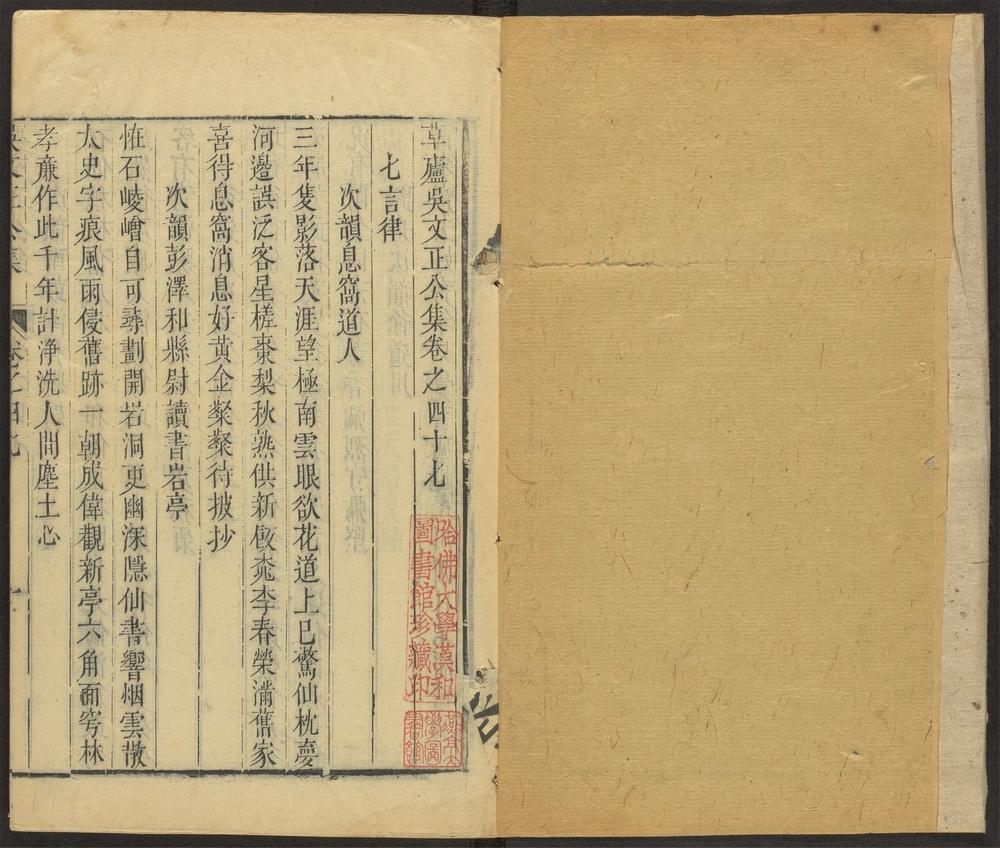 草廬吳文正公集卷之四十九
七言律
次韻息窩道人
三年隻影落天涯望極南雲眼欲花道上已驚仙枕夢
河邊誤泛客星槎棗梨秋熟供新飣桃李春榮滿舊家
喜得息窩消息好黄金粲粲待披抄
次韻彭澤和縣尉讀書岩亭
恠石崚嶒自可尋劃開岩洞更幽深隱仙書響烟雲散
太史字痕風雨侵舊跡一朝成偉觀新亭六角面穹林
孝廉作此千年計浄洗人間塵土心
吳文正公集
卷之四十九
一
哈佛大學漢和
圖書館珍藏印